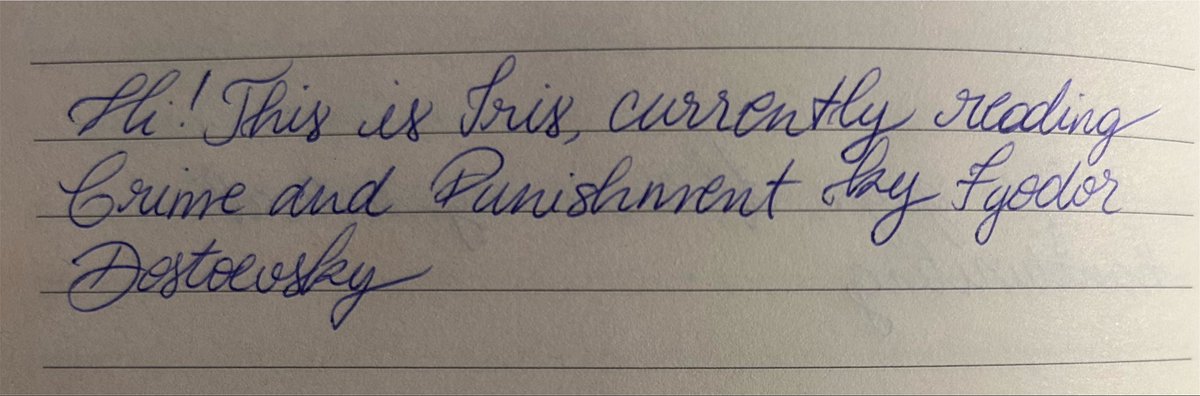 Hi! This is Iris, currently reading
Crime and Punishment by Fyodor
Dostoevsky